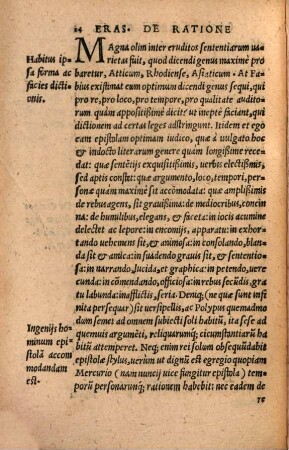 24 ERAS. DE RATIONE
Habitus ip
sa forma ac
facies dictio
nis.
MAgna olim inter eruditos sententiarum ua
rietas fuit, quod dicendi genus maximè pro
baretur, Atticum, Rhodiense, Asiaticum. At Fa
bius existimat eum optimum dicendi genus sequi, qui
pro re, pro loco, pro tempore, pro qualitate audito
rum quàm appositissimè dicit: ut ineptè faciant, qui
dictionem ad certas leges adstringunt. Itidem et ego
eam epistolam optimam iudico, quæ à uulgato hoc
& indocto literarum genere quàm longissimè rece
dat: quæ sententijs exquisitissimis, uerbis electissimis,
sed aptis constet: quæ argumento, loco, tempori, per
sonæ quàm maximè sit accõmodata: quæ amplissimis
de rebus agens, sit grauissima: de mediocribus, concin
na: de humilibus, elegans, & faceta: in iocis acumine
delectet ac lepore: in encomijs, apparatu: in exhor
tando uehemens sit, & animosa: in consolando, blan
da & amica: in suadendo grauis sit, & sententio
sa: in narrando, lucida, et graphica: in petendo, uere
cunda: in cõmendando, officiosa: in rebus secũdis, gra
tulabunda: in afflictis, seria. Deniq; (ne quæ sunt infi
nita persequar) sit uersipellis, ac Polypus quemadmo
dum semet ad omnem subiecti soli habitũ, ita sese ad
quemuis argumẽti, reliquarumq; circumstãtiarũ ha
bitũ attemperet. Neq; enim rei solum obsequũdabit
epistolæ stylus, uerum ut dignũ est egregio quopiam
Mercurio (nam nuncij uice fungitur epistola) tem
porũ personarumq; rationem habebit: nec eadem de
Ingenijs ho
minum epi
stolã accom
modandam
est.
re